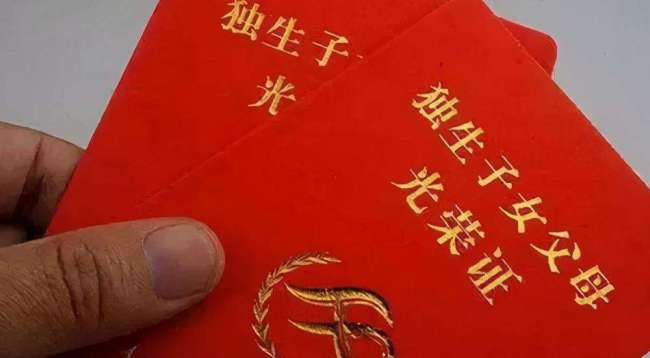 独生子
光
独生子女父母
光荣证